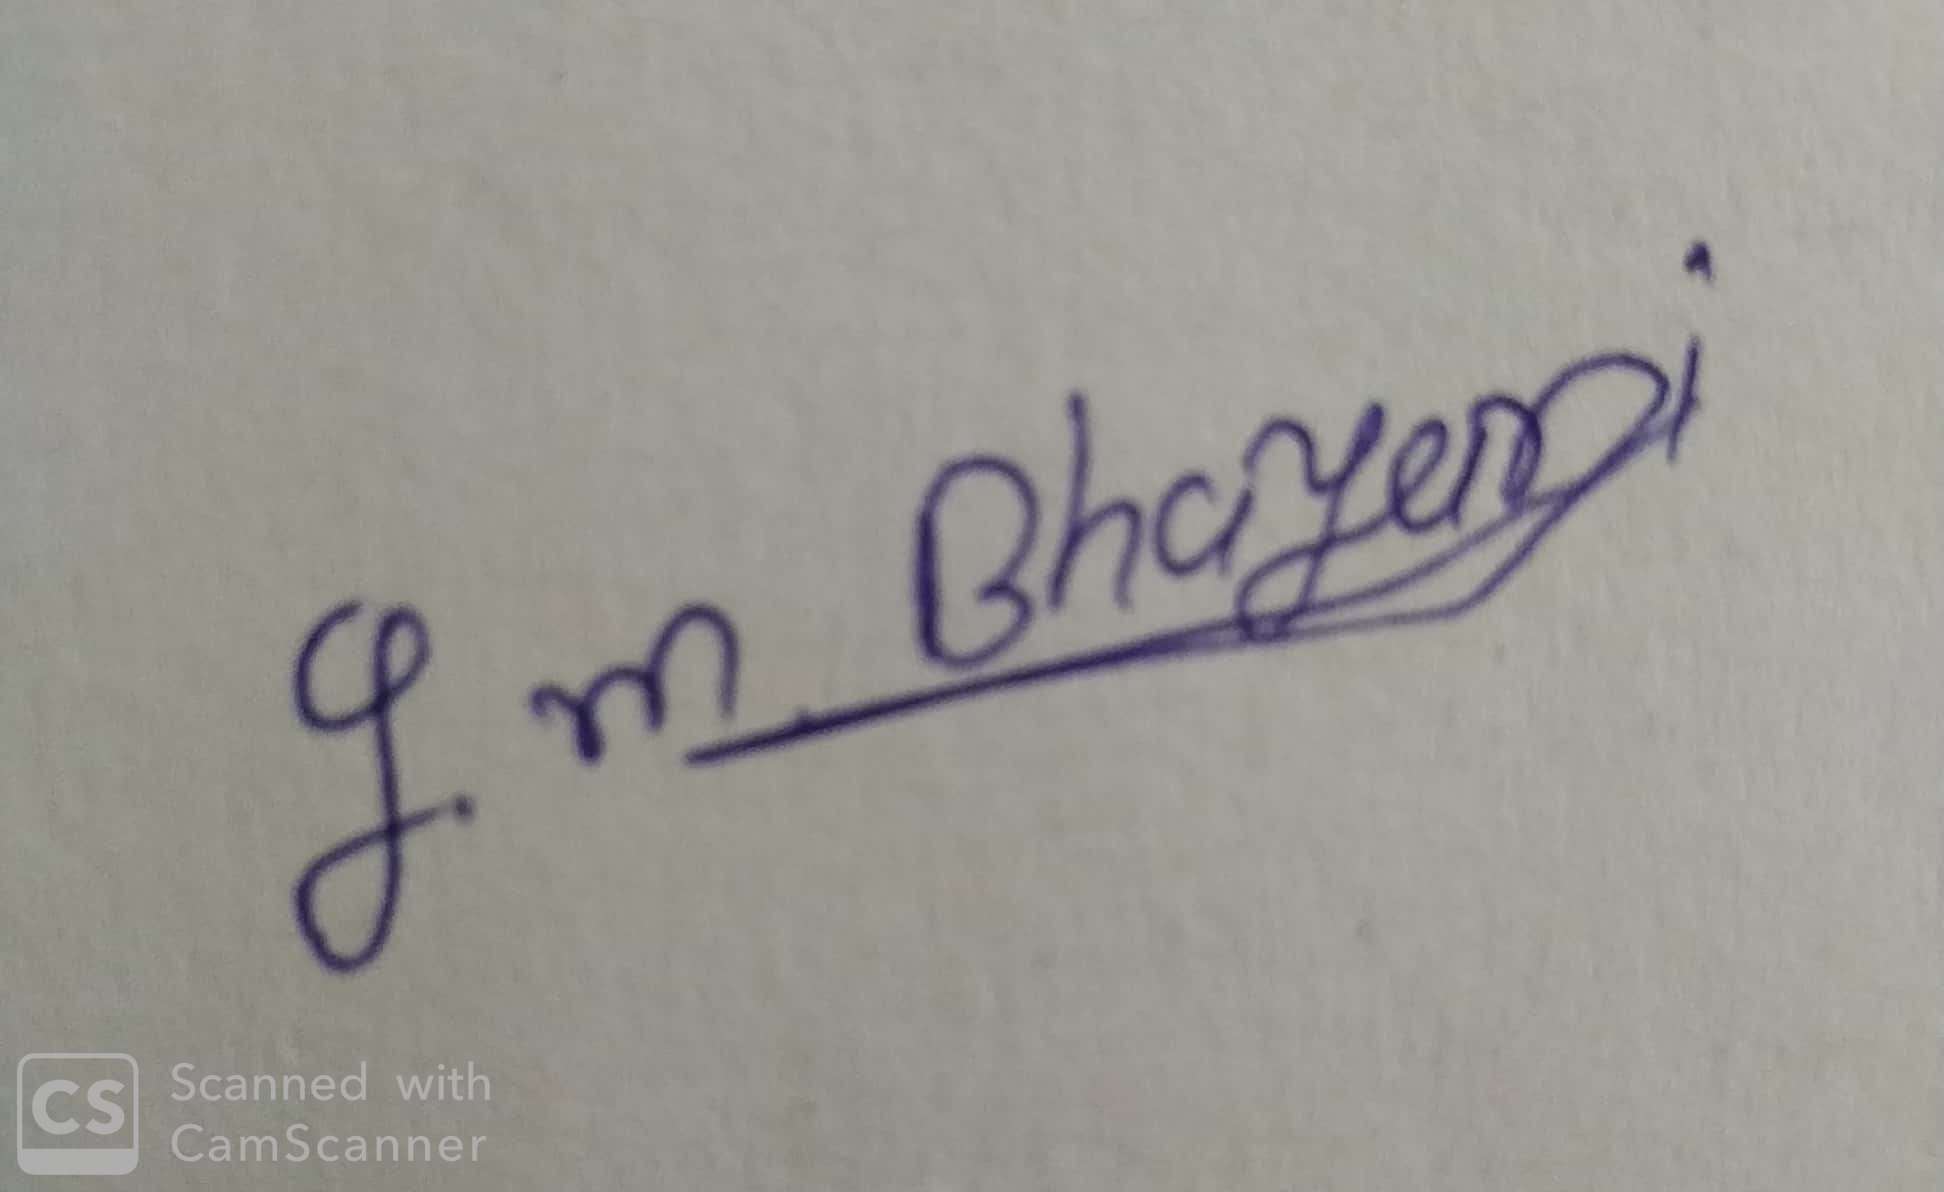 G. m. Bhayani
CS Scanned with
CamScanner